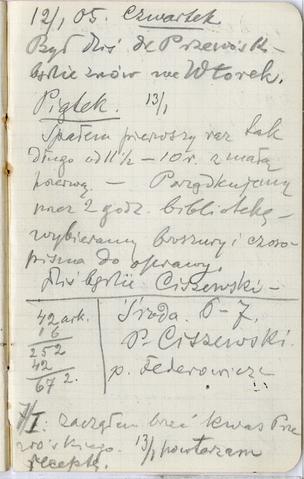 12/1 05. Czwartek
Był dziś dr Przewósk-
będzie znów we Wtorek.
Piątek. 13/1
Spałem pierwszy raz tak
długo od 11½ – 10 r. z małą
przerwą. — Porządkujemy
przez 2 godz. bibliotekę —
wybieramy broszury i czaso-
pisma do oprawy.
dziś będzie Ciszewski —
42 ark.
16
252
42
672.
Środa. 6-7.
P. Ciszewski.
p. Federowicz
7/I: zacząłem brać kwas Prze
wóskiego. 13/1 powtarzam
receptę.